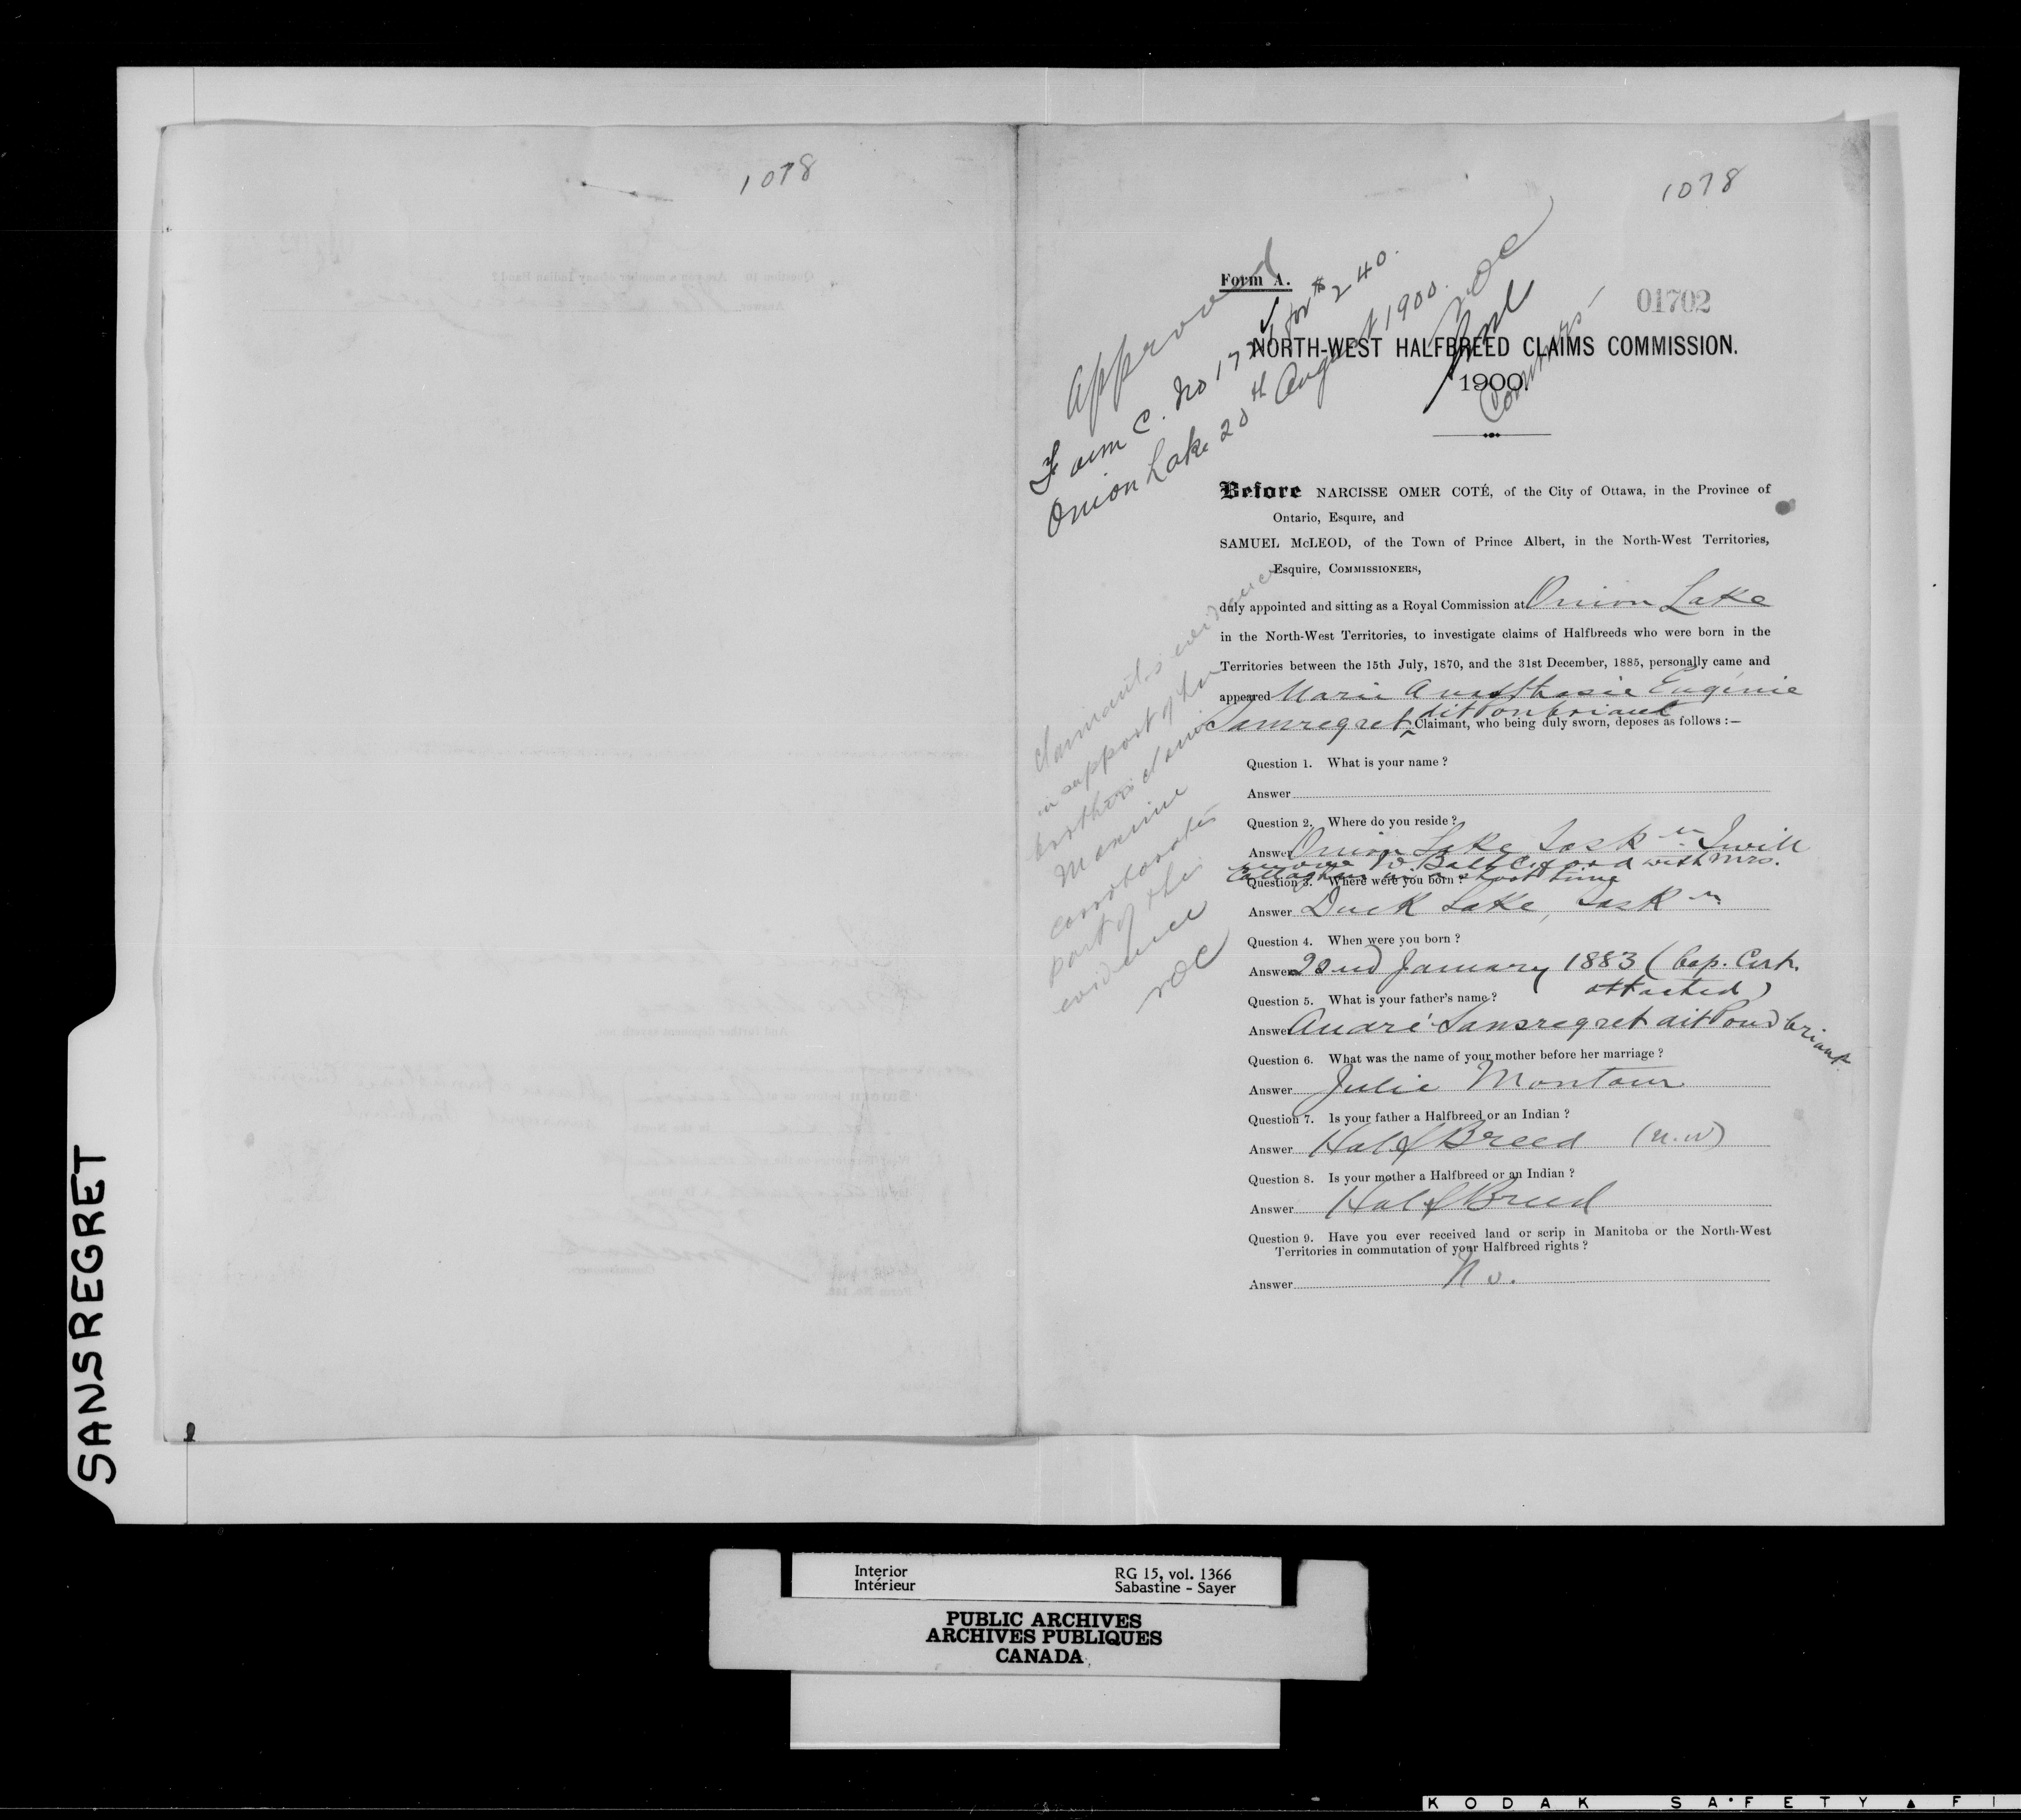 1078
1078
Form A.
01702
Approved
Form C. No 1721 for $240.
Onion Lake 20th August 1900.
NOC
Commrs
NORTH-WEST HALFBREED CLAIMS COMMISSION.
1900.
Before NARCISSE OMER COTÉ, of the City of Ottawa, in the Province of
Ontario, Esquire, and
SAMUEL McLEOD, of the Town of Prince Albert, in the North-West Territories,
Esquire, COMMISSIONERS,
duly appointed and sitting as a Royal Commission at Onion Lake
in the North-West Territories, to investigate claims of Halfbreeds who were born in the
Territories between the 15th July, 1870, and the 31st December, 1885, personally came and
appeared Marie Anasthasie Eugénie
Sansregret dit Ponbriand Claimant, who being duly sworn, deposes as follows :—
Claimant's evidence
in support of her
brother's claim
Maxime
corroborates
part of this
evidence
NOC
Question 1. What is your name ?
Answer
Question 2. Where do you reside ?
Answer Onion Lake Sask n. I will
move to Battleford with Mrs.
Callaghan in a short time
Question 3. Where were you born ?
Answer Duck Lake, Sask n
Question 4. When were you born ?
Answer 22nd January 1883 (Bap. Cert.
attached)
Question 5. What is your father's name ?
Answer André Sansregret dit Pondbriant
Question 6. What was the name of your mother before her marriage ?
Answer Julie Montour
Question 7. Is your father a Halfbreed or an Indian ?
Answer Half Breed (N.W)
Question 8. Is your mother a Halfbreed or an Indian ?
Answer Half Breed
Question 9. Have you ever received land or scrip in Manitoba or the North-West
Territories in commutation of your Halfbreed rights ?
Answer No.
SANSREGRET
Interior RG 15, vol. 1366
Intérieur Sabastine - Sayer
PUBLIC ARCHIVES
ARCHIVES PUBLIQUES
CANADA
KODAK SAFETY FI